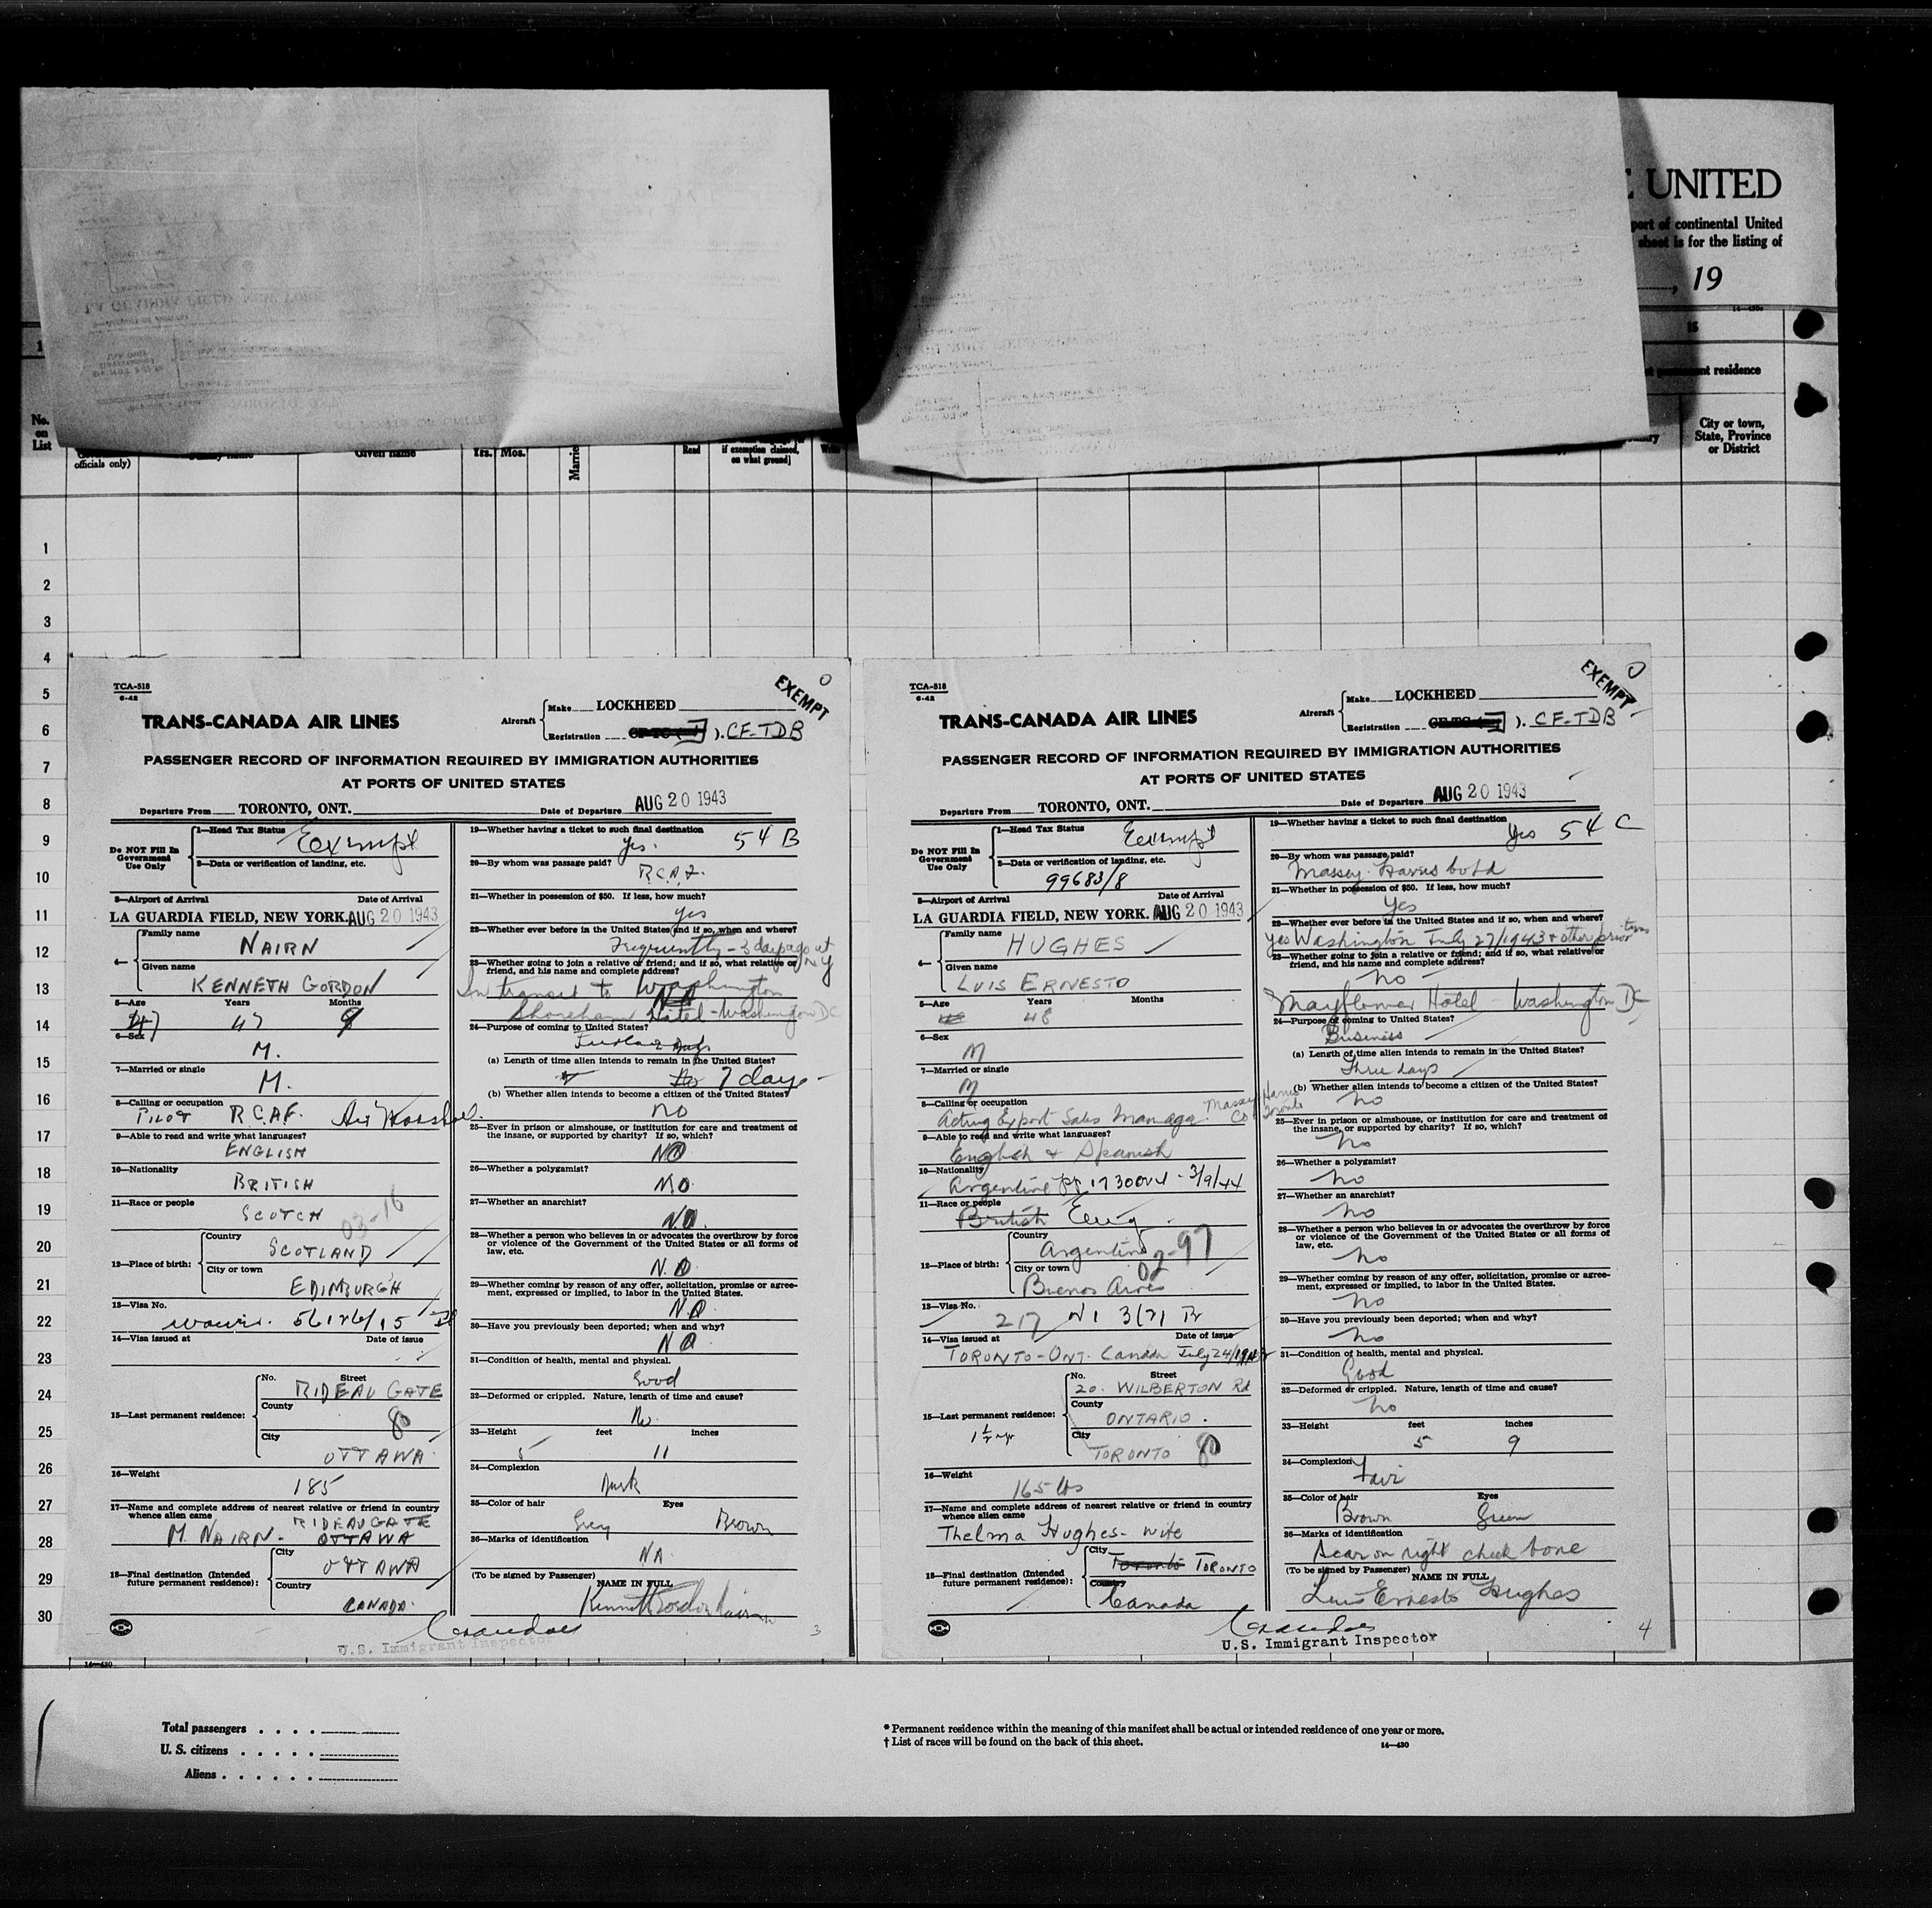 UNITED
port of continental United
sheet is for the listing of
, 19
14—430
15
permanent residence
City or town,
State, Province
or District
No.
on
List
officials only)
Family name
Given name
Yrs.
Mos.
Read
if exemption claimed,
on what ground]
1
2
3
4
5
6
7
8
9
10
11
12
13
14
15
16
17
18
19
20
21
22
23
24
25
26
27
28
29
30
TCA-518
6-42
EXEMPT
TRANS-CANADA AIR LINES
Aircraft
Make LOCKHEED
Registration ). CF-TDB
PASSENGER RECORD OF INFORMATION REQUIRED BY IMMIGRATION AUTHORITIES
AT PORTS OF UNITED STATES
Departure From TORONTO, ONT. Date of Departure AUG 20 1943
Do NOT Fill In
Government
Use Only
1—Head Tax Status Exempt
2—Data or verification of landing, etc.
3—Airport of Arrival Date of Arrival
LA GUARDIA FIELD, NEW YORK. AUG 20 1943
4—
Family name
NAIRN
Given name
KENNETH GORDON
5—Age Years Months
47 47 9
6—Sex
M.
7—Married or single
M.
8—Calling or occupation
PILOT R.C.A.F. Air Marshal.
9—Able to read and write what languages?
ENGLISH
10—Nationality
BRITISH
11—Race or people
SCOTCH
03-16
12—Place of birth:
Country
SCOTLAND
City or town
EDINBURGH
13—Visa No.
56126/15
14—Visa issued at Date of issue
15—Last permanent residence:
No. Street
RIDEAU GATE
County
80
City
OTTAWA
16—Weight
185
17—Name and complete address of nearest relative or friend in country
whence alien came
RIDEAU GATE
M. NAIRN - OTTAWA
18—Final destination (Intended
future permanent residence):
City
OTTAWA
Country
CANADA.
19—Whether having a ticket to such final destination
yes. 54 B
20—By whom was passage paid?
R.C.A.F.
21—Whether in possession of $50. If less, how much?
yes
22—Whether ever before in the United States and if so, when and where?
Frequently - 3 days ago at
N Y
23—Whether going to join a relative or friend; and if so, what relative or
friend, and his name and complete address?
In transit to Washington
Shoreham Hotel - Washington DC
24—Purpose of coming to United States?
(a) Length of time alien intends to remain in the United States?
7 days
(b) Whether alien intends to become a citizen of the United States?
NO
25—Ever in prison or almshouse, or institution for care and treatment of
the insane, or supported by charity? If so, which?
NO
26—Whether a polygamist?
NO.
27—Whether an anarchist?
NO.
28—Whether a person who believes in or advocates the overthrow by force
or violence of the Government of the United States or all forms of
law, etc.
NO
29—Whether coming by reason of any offer, solicitation, promise or agree-
ment, expressed or implied, to labor in the United States.
NO
30—Have you previously been deported; when and why?
NO
31—Condition of health, mental and physical.
Good
32—Deformed or crippled. Nature, length of time and cause?
No.
33—Height feet inches
5 11
34—Complexion
Dark
35—Color of hair Eyes
Grey Brown
36—Marks of identification
NA.
(To be signed by Passenger)
NAME IN FULL
Kenneth Gordon Nairn
U.S. Immigrant Inspector
3
TCA-518
6-42
EXEMPT
TRANS-CANADA AIR LINES
Aircraft
Make LOCKHEED
Registration ). CF-TDB
PASSENGER RECORD OF INFORMATION REQUIRED BY IMMIGRATION AUTHORITIES
AT PORTS OF UNITED STATES
Departure From TORONTO, ONT. Date of Departure AUG 20 1943
Do NOT Fill In
Government
Use Only
1—Head Tax Status Exempt
2—Data or verification of landing, etc.
99683/8
3—Airport of Arrival Date of Arrival
LA GUARDIA FIELD, NEW YORK. AUG 20 1943
4—
Family name
HUGHES
Given name
LUIS ERNESTO
5—Age Years Months
48
6—Sex
M
7—Married or single
M
8—Calling or occupation
Acting Export Sales Manager Massey Harris
Co Toronto
9—Able to read and write what languages?
English & Spanish
10—Nationality
Argentine - 3/9/44
11—Race or people
British Eng.
12—Place of birth:
Country
Argentine
02-97
City or town
Buenos Aires
13—Visa No.
217
14—Visa issued at Date of issue
TORONTO - ONT. Canada July 24/1943
15—Last permanent residence:
No. Street
20. WILBERTON Rd
County
ONTARIO.
City
TORONTO 80
16—Weight
165 lbs
17—Name and complete address of nearest relative or friend in country
whence alien came
Thelma Hughes - wife
18—Final destination (Intended
future permanent residence):
City
Toronto TORONTO
Country
Canada
19—Whether having a ticket to such final destination
yes 54 C
20—By whom was passage paid?
Massey Harris
21—Whether in possession of $50. If less, how much?
Yes
22—Whether ever before in the United States and if so, when and where?
yes Washington July 27/1943 & other prior
23—Whether going to join a relative or friend; and if so, what relative or
friend, and his name and complete address?
no
Mayflower Hotel - Washington DC
24—Purpose of coming to United States?
Business
(a) Length of time alien intends to remain in the United States?
Three days
(b) Whether alien intends to become a citizen of the United States?
No
25—Ever in prison or almshouse, or institution for care and treatment of
the insane, or supported by charity? If so, which?
no
26—Whether a polygamist?
no
27—Whether an anarchist?
no
28—Whether a person who believes in or advocates the overthrow by force
or violence of the Government of the United States or all forms of
law, etc.
no
29—Whether coming by reason of any offer, solicitation, promise or agree-
ment, expressed or implied, to labor in the United States.
no
30—Have you previously been deported; when and why?
no
31—Condition of health, mental and physical.
Good
32—Deformed or crippled. Nature, length of time and cause?
no
33—Height feet inches
5 9
34—Complexion
Fair
35—Color of hair Eyes
Brown Green
36—Marks of identification
Scar on right cheek bone
(To be signed by Passenger)
NAME IN FULL
Luis Ernesto Hughes
U.S. Immigrant Inspector
4
14—430
Total passengers . . . .
U. S. citizens . . . . .
Aliens . . . . . .
* Permanent residence within the meaning of this manifest shall be actual or intended residence of one year or more.
† List of races will be found on the back of this sheet.
14—430